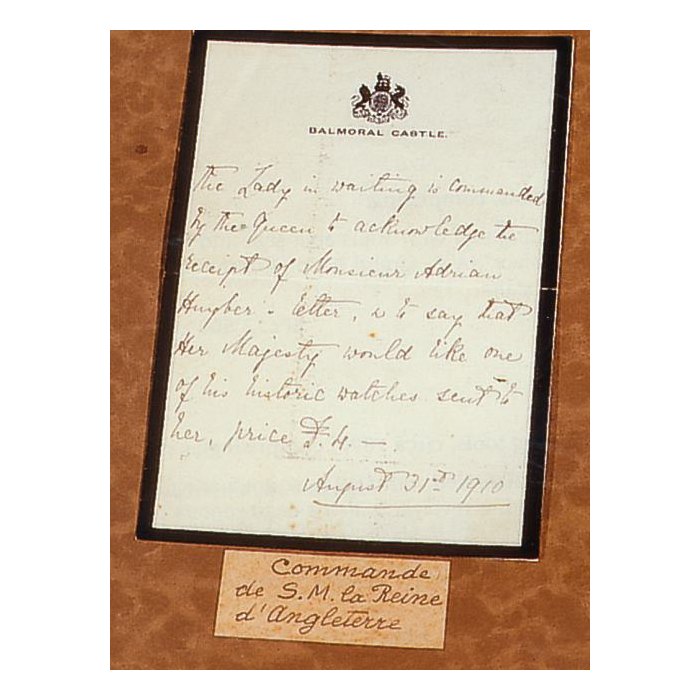 BALMORAL CASTLE.
The Lady in waiting is commanded
by the Queen to acknowledge the
receipt of Monsieur Adrian
Huyber's letter, & to say that
Her Majesty would like one
of his historic watches sent to
her, price
August 31st 1910
Commande
de S.M. la Reine
d'Angleterre